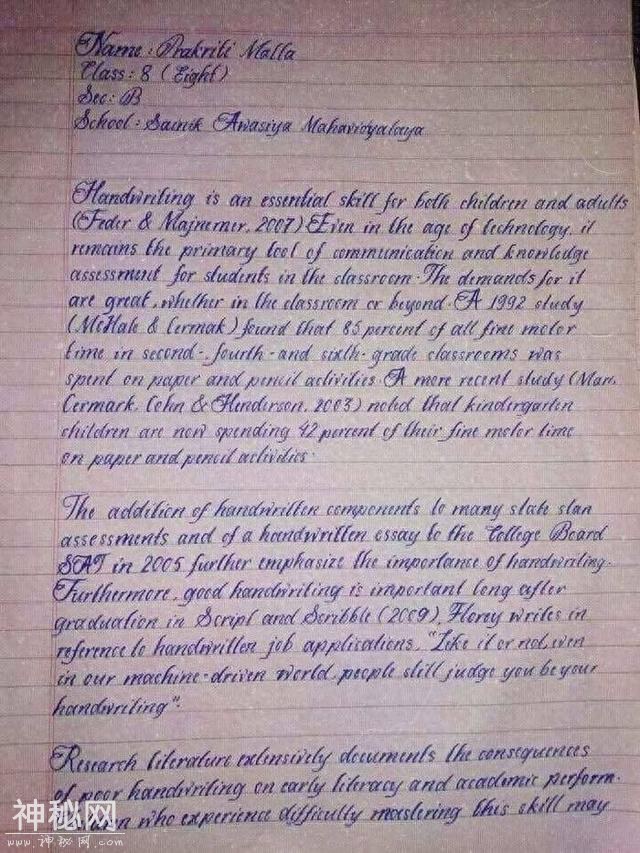 Name : Prakriti Malla
Class : 8 ( Eight )
Sec : B
School : Sainik Awasiya Mahavidyalaya
Handwriting is an essential skill for both children and adults
(Feder & Majnemer, 2007) Even in the age of technology, it
remains the primary tool of communication and knowledge
assessment for students in the classroom. The demands for it
are great, whether in the classroom or beyond. A 1992 study
(McHale & Cermak) found that 85 percent of all fine motor
time in second-, fourth-and sixth-grade classrooms was
spent on paper and pencil activities. A more recent study (Marr,
Cermark, Cohn & Henderson, 2003) noted that kindergarten
children are now spending 42 percent of their fine motor time
on paper and pencil activities.
The addition of handwritten components to many state stan
assessments and of a handwritten essay to the College Board
SAT in 2005 further emphasize the importance of handwriting.
Furthermore, good handwriting is important long after
graduation in Script and Scribble (2009), Florey writes in
reference to handwritten job applications, "Like it or not, even
in our machine-driven world, people still judge you be your
handwriting".
Research literature extensively documents the consequences
of poor handwriting on early literacy and academic perform.
who experience difficulty mastering this skill may
神秘网
www.神秘网.com